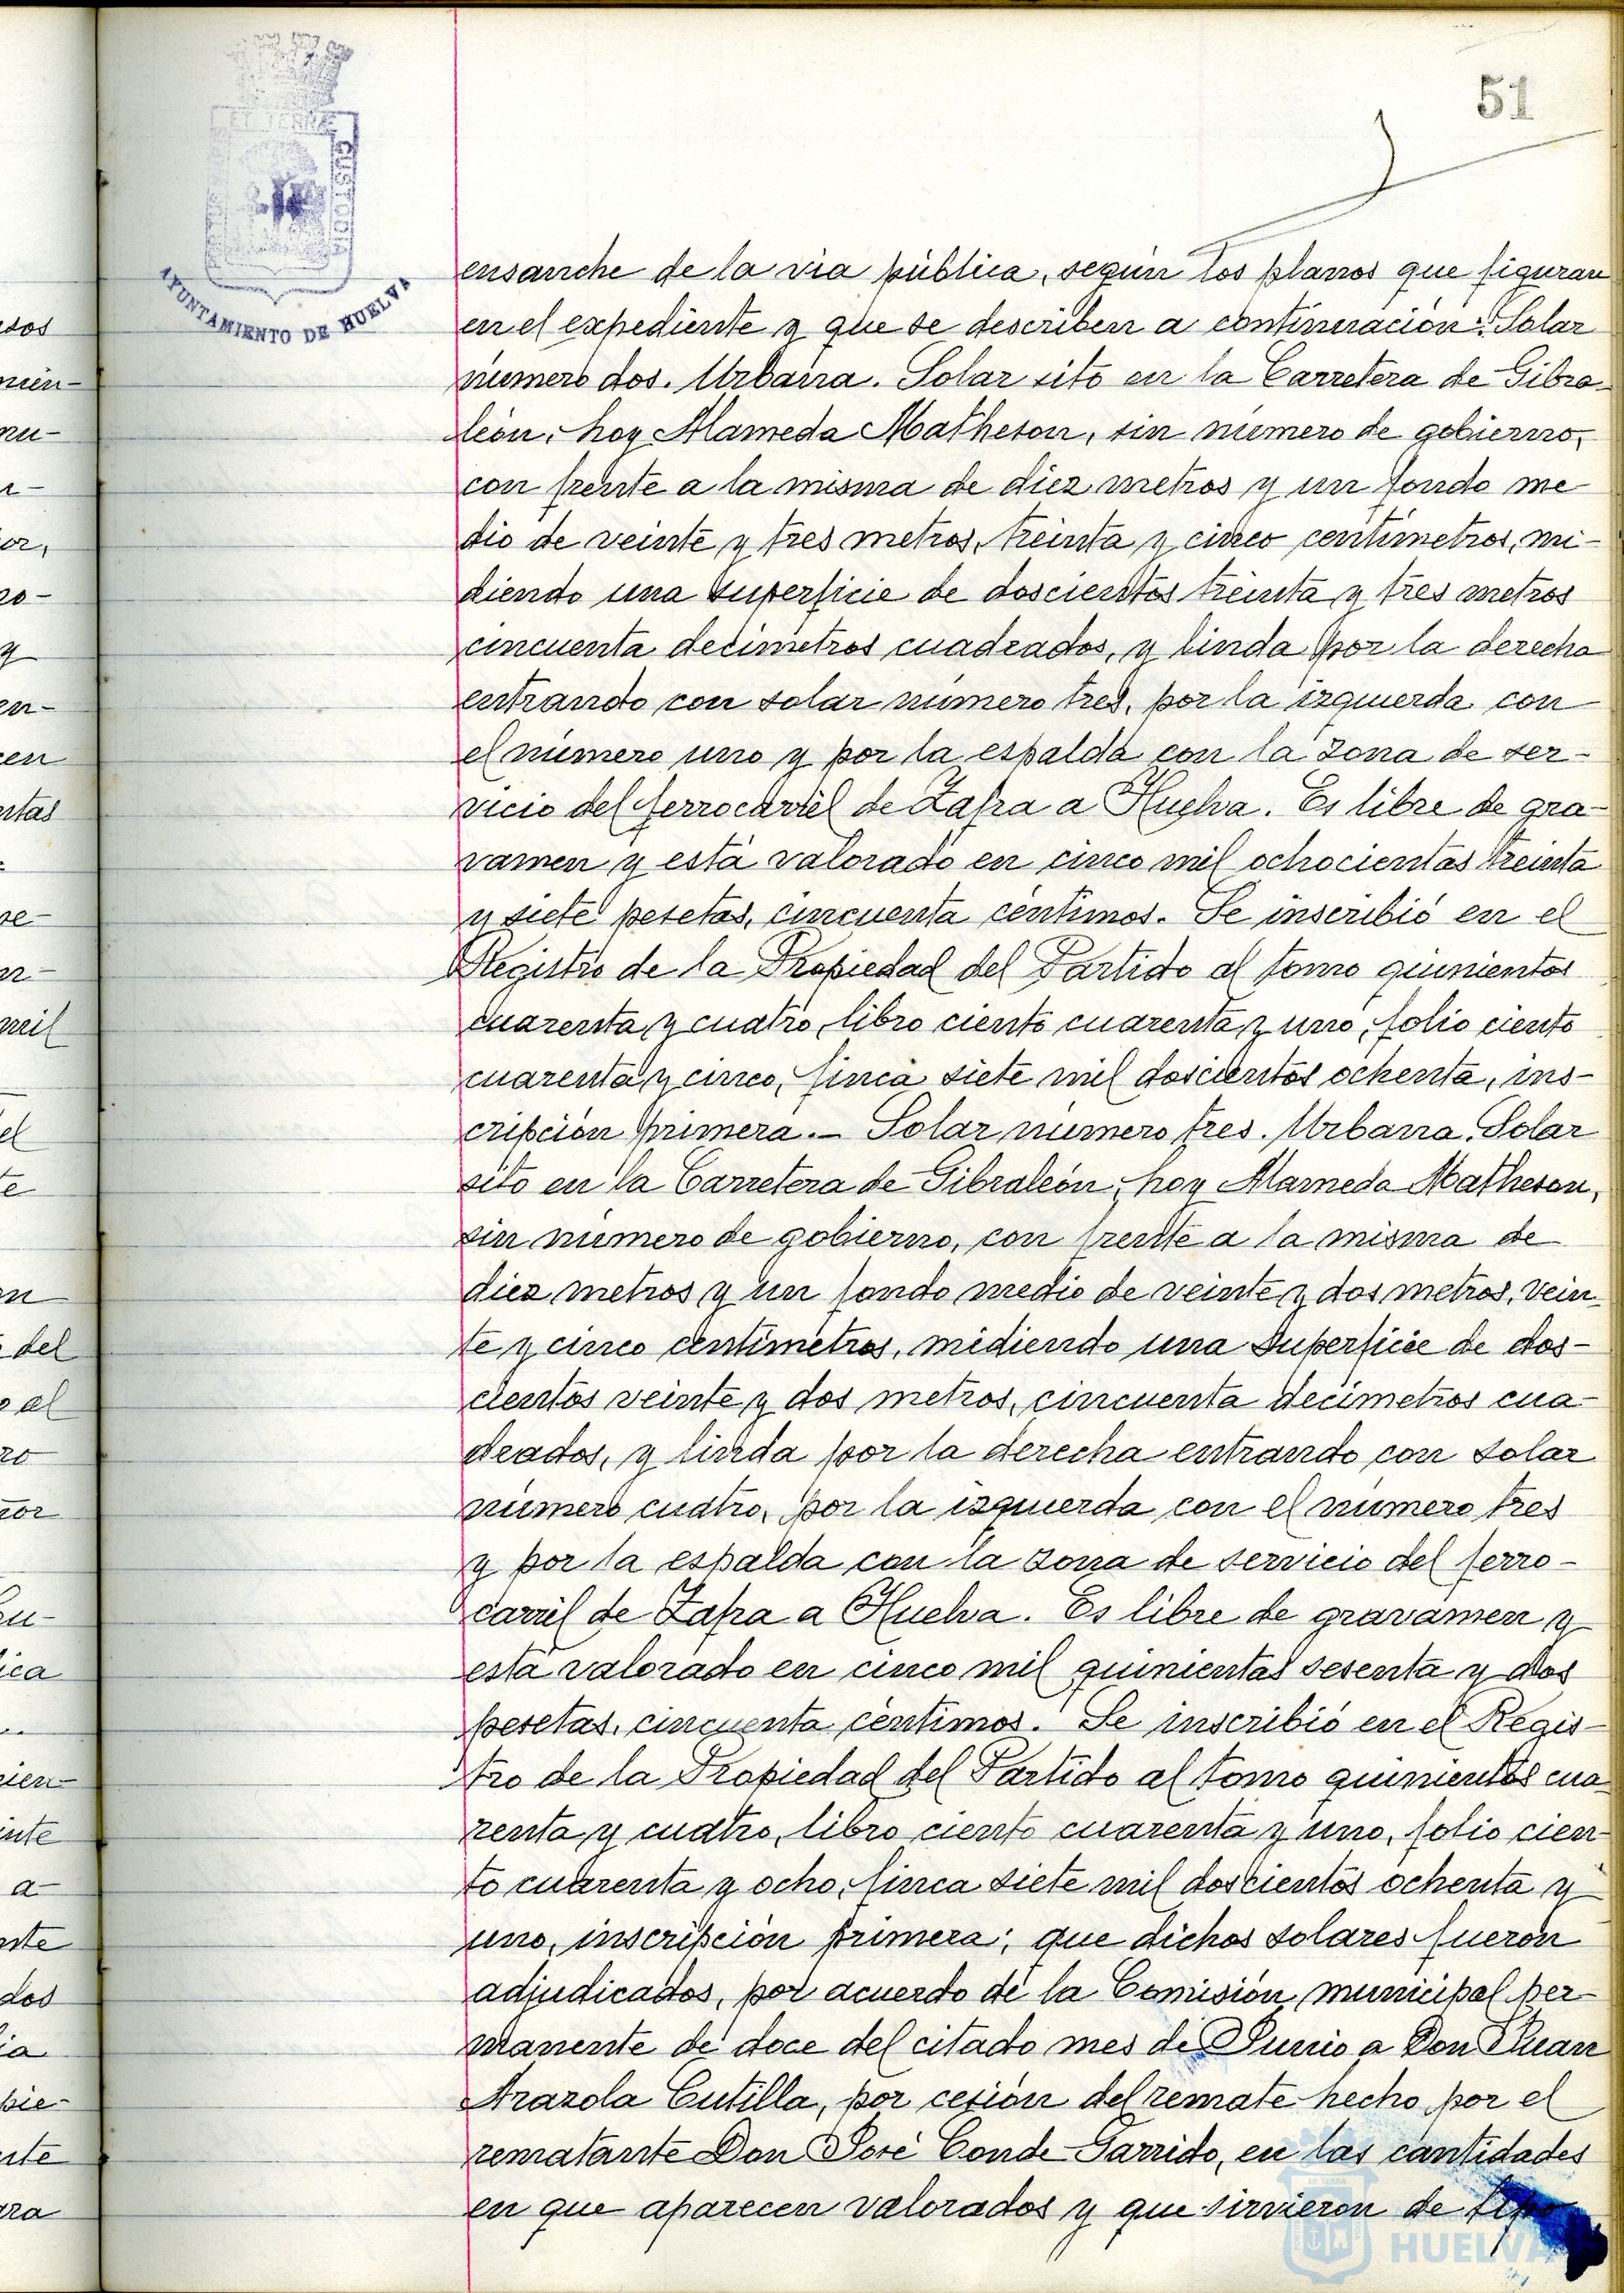 51
ET TERRÆ
CUSTODIA
AYUNTAMIENTO DE HUELVA
ensanche de la via pública, según los planos que figuran
en el expediente y que se describen a continuación: Solar
número dos. Urbana. Solar sito en la Carretera de Gibra-
león, hoy Alameda Matheson, sin número de gobierno,
con frente a la misma de diez metros y un fondo me-
dio de veinte y tres metros, treinta y cinco centímetros, mi-
diendo una superficie de doscientos treinta y tres metros
cincuenta decímetros cuadrados, y linda por la derecha
entrando con solar número tres, por la izquierda con
el número uno y por la espalda con la zona de ser-
vicio del ferrocarril de Zafra a Huelva. Es libre de gra-
vamen y está valorado en cinco mil ochocientas treinta
y siete pesetas, cincuenta céntimos. Se inscribió en el
Registro de la Propiedad del Partido al tomo quinientos
cuarenta y cuatro, libro ciento cuarenta y uno, folio ciento
cuarenta y cinco, finca siete mil doscientos ochenta, ins-
cripción primera.- Solar número tres. Urbana. Solar
sito en la Carretera de Gibraleón, hoy Alameda Matheson,
sin número de gobierno, con frente a la misma de
diez metros y un fondo medio de veinte y dos metros, vein-
te y cinco centímetros, midiendo una superficie de dos-
cientos veinte y dos metros, cincuenta decímetros cua-
drados, y linda por la derecha entrando con solar
número cuatro, por la izquierda con el número tres
y por la espalda con la zona de servicio del ferro-
carril de Zafra a Huelva. Es libre de gravamen y
está valorado en cinco mil quinientas sesenta y dos
pesetas, cincuenta céntimos. Se inscribió en el Regis-
tro de la Propiedad del Partido al tomo quinientos cua-
renta y cuatro, libro ciento cuarenta y uno, folio cien-
to cuarenta y ocho, finca siete mil doscientos ochenta y
uno, inscripción primera; que dichos solares fueron
adjudicados, por acuerdo de la Comisión municipal per-
manente de doce del citado mes de Junio a Don Juan
Arazola Cutilla, por cesión del remate hecho por el
rematante Don José Conde Garrido, en las cantidades
en que aparecen valorados y que sirvieron de tipo
HUELVA